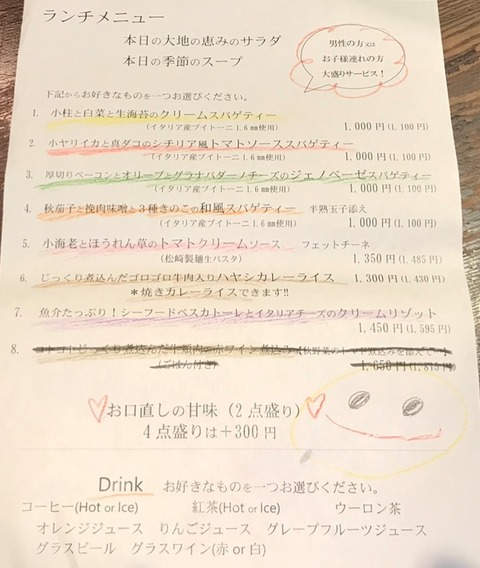 ランチメニュー
本日の大地の恵みのサラダ
本日の季節のスープ
男性の方又は
お子様連れの方
大盛りサービス！
下記からお好きなものを一つお選びください。
1. 小柱と白菜と生海苔のクリームスパゲティー
(イタリア産ブイトーニ 1.6㎜使用) 1,000円(1,100円)
2. 小ヤリイカと真ダコのシチリア風トマトソーススパゲティー
(イタリア産ブイトーニ 1.6㎜使用) 1,000円(1,100円)
3. 厚切りベーコンとオリーブとグラナパダーノチーズのジェノベーゼスパゲティー
(イタリア産ブイトーニ 1.6㎜使用) 1,000円(1,100円)
4. 秋茄子と挽肉味噌と３種きのこの和風スパゲティー 半熟玉子添え
(イタリア産ブイトーニ 1.6㎜使用) 1,000円(1,100円)
5. 小海老とほうれん草のトマトクリームソース フェットチーネ
(松崎製麺生パスタ) 1,350円(1,485円)
6. じっくり煮込んだゴロゴロ牛肉入りハヤシカレーライス 1,300円(1,430円)
＊焼きカレーライスできます!!
7. 魚介たっぷり！シーフードペスカトーレとイタリアチーズのクリームリゾット
1,450円(1,595円)
8. コトコトじっくり煮込んだ牛頬肉の赤ワイン煮込み
(ごはん付き) 1,650円(1,815円)
お口直しの甘味（2点盛り）
4点盛りは＋300円
Drink お好きなものを一つお選びください。
コーヒー(Hot or Ice) 紅茶(Hot or Ice) ウーロン茶
オレンジジュース りんごジュース グレープフルーツジュース
グラスビール グラスワイン(赤 or 白)